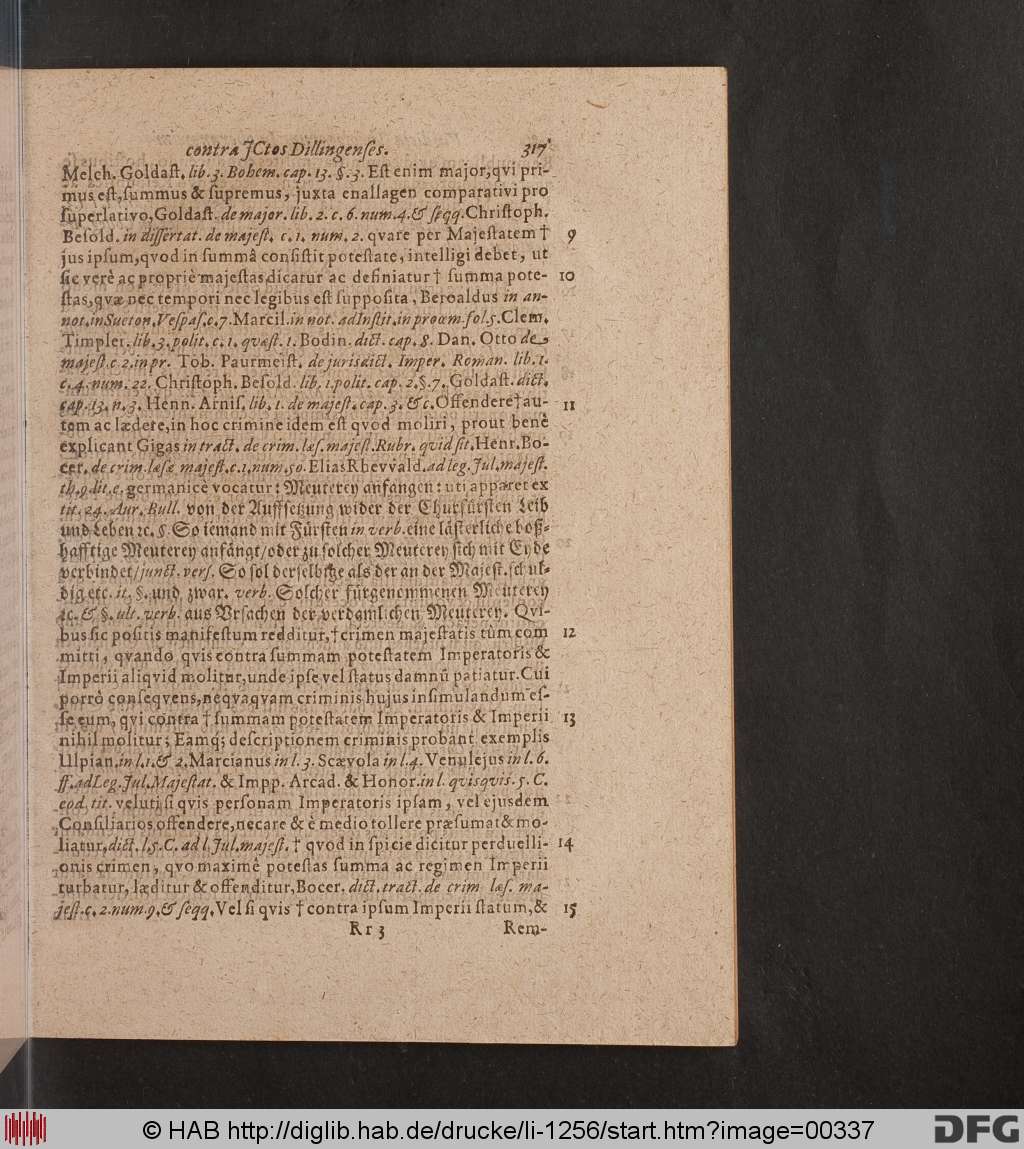 contra JCtos Dillingenses. 317
Melch. Goldast. lib. 3. Bohem. cap. 13. §. 3. Est enim major, qvi pri-
mus est, summus & supremus, juxta enallagen comparativi pro
superlativo, Goldast. de major. lib. 2. c. 6. num. 4. & seqq. Christoph.
Besold. in dissertat. de majest. c. 1. num. 2. qvare per Majestatem † 9
jus ipsum, qvod in summâ consistit potestate, intelligi debet, ut
sic verè ac propriè majestas dicatur ac definiatur † summa pote- 10
stas, qvæ nec tempori nec legibus est supposita, Beroaldus in an-
not. in Sueton. Vespas. c. 7. Marcil. in not. ad Instit. in proœm. fol. 5. Clem.
Timpler. lib. 3. polit. c. 1. qvæst. 1. Bodin. dict. cap. 8. Dan. Otto de
majest. c. 2. in pr. Tob. Paurmeist. de jurisdict. Imper. Roman. lib. 1.
c. 4. num. 22. Christoph. Besold. lib. 1. polit. cap. 2. §. 7. Goldast. dict.
cap. 13. n. 3. Henn. Arnis. lib. 1. de majest. cap. 3. & c. Offendere † au- 11
tem ac lædere, in hoc crimine idem est qvod moliri, prout benè
explicant Gigas in tract. de crim. læs. majest. Rubr. qvid sit. Henr. Bo-
cer. de crim. læsæ majest. c. 1. num. 50. Elias Rhevvald. ad leg. Jul. majest.
th. 9. lit. e. germanicè vocatur: Meuterey anfangen: uti apparet ex
tit. 24. Aur. Bull. von der Auffsetzung wider der Churfürsten Leib
und Leben ꝛc. §. So iemand mit Fürsten in verb. eine lästerliche boß-
hafftige Meuterey anfängt/ oder zu solcher Meuterey sich mit Eyde
verbindet/ junct. vers. So sol derselbige als der an der Majest. schul-
dig etc. it. §. und zwar. verb. Solcher fürgenommenen Meuterey
ꝛc. & §. ult. verb. aus Vrsachen der verdamlichen Meuterey. Qvi-
bus sic positis manifestum redditur, † crimen majestatis tùm com 12
mitti, qvando qvis contra summam potestatem Imperatoris &
Imperii aliqvid molitur, unde ipse vel status damnū patiatur. Cui
porrò conseqvens, neqvaqvam criminis hujus insimulandum es-
se eum, qvi contra † summam potestatem Imperatoris & Imperii 13
nihil molitur; Eamq; descriptionem criminis probant exemplis
Ulpian. in l. 1. & 2. Marcianus in l. 3. Scævola in l. 4. Venulejus in l. 6.
ff. ad Leg. Jul. Majestat. & Impp. Arcad. & Honor. in l. qvisqvis. 5. C.
eod. tit. veluti si qvis personam Imperatoris ipsam, vel ejusdem
Consiliarios offendere, necare & è medio tollere præsumat & mo-
liatur, dict. l. 5. C. ad l. Jul. majest. † qvod in spicie dicitur perduelli- 14
onis crimen, qvo maximè potestas summa ac regimen Imperii
turbatur, læditur & offenditur, Bocer. dict. tract. de crim læs. ma-
jest. c. 2. num. 9. & seqq. Vel si qvis † contra ipsum Imperii statum, & 15
Rr 3 Rem-
© HAB http://diglib.hab.de/drucke/li-1256/start.htm?image=00337
DFG